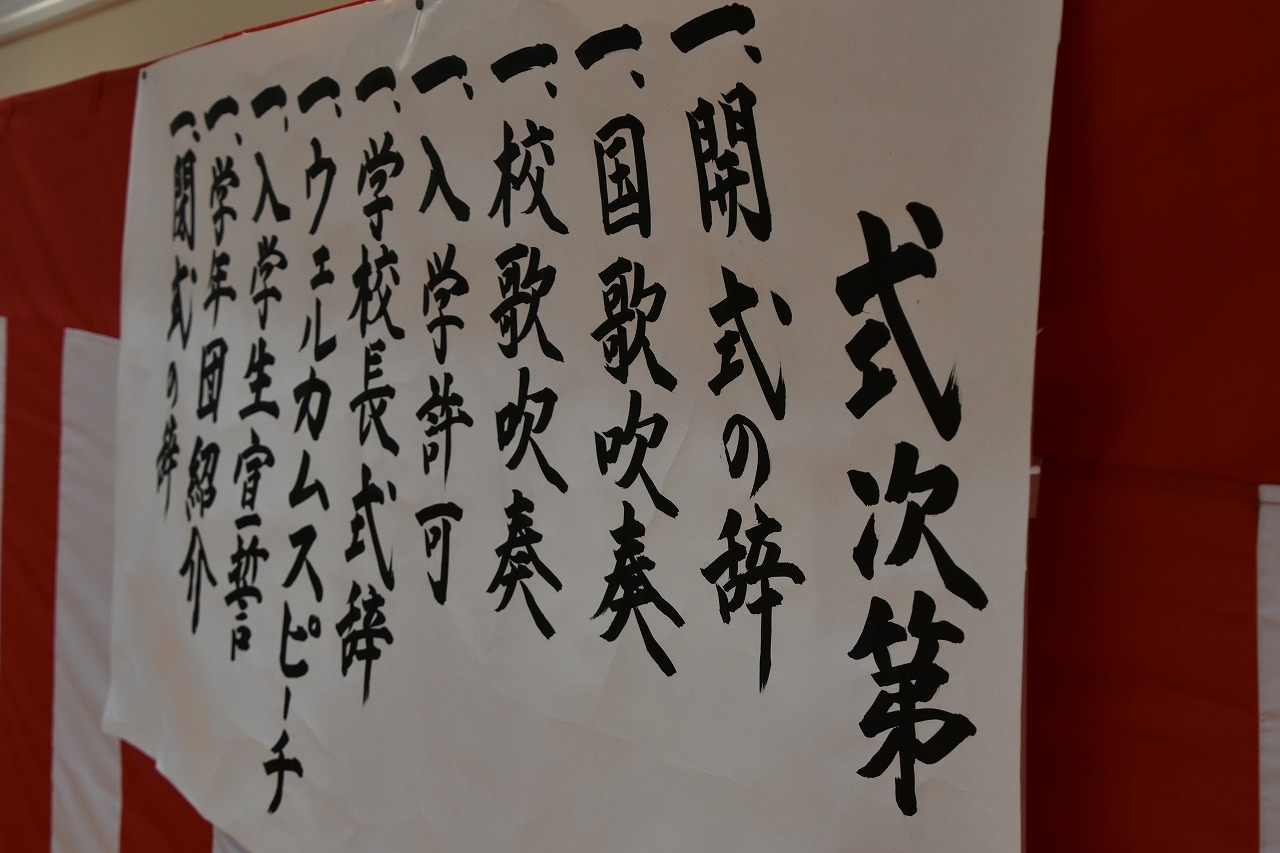 式次第
一、開式の辞
一、国歌吹奏
一、校歌吹奏
一、入学許可
一、学校長式辞
一、ウェルカムスピーチ
一、入学生宣誓
一、学年団紹介
一、閉式の辞